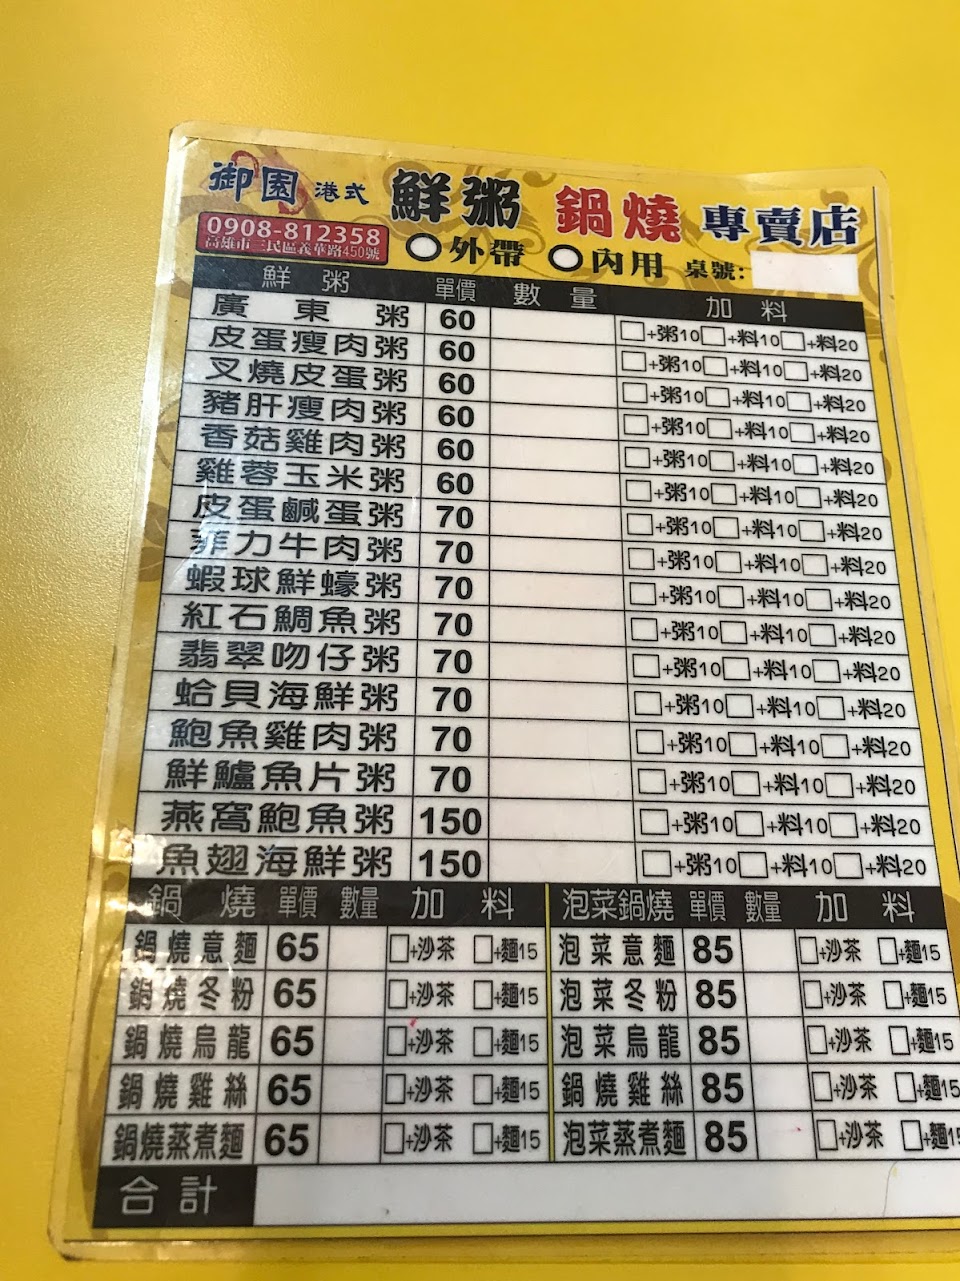 御園 港式 鮮粥 鍋燒 專賣店
0908-812358
高雄市三民區義華路450號
外帶 內用 桌號:
鮮粥 單價 數量 加料
廣東粥 60 +粥10 +料10 +料20
皮蛋瘦肉粥 60 +粥10 +料10 +料20
叉燒皮蛋粥 60 +粥10 +料10 +料20
豬肝瘦肉粥 60 +粥10 +料10 +料20
香菇雞肉粥 60 +粥10 +料10 +料20
雞蓉玉米粥 60 +粥10 +料10 +料20
皮蛋鹹蛋粥 70 +粥10 +料10 +料20
菲力牛肉粥 70 +粥10 +料10 +料20
蝦球鮮蠔粥 70 +粥10 +料10 +料20
紅石鯛魚粥 70 +粥10 +料10 +料20
翡翠吻仔粥 70 +粥10 +料10 +料20
蛤貝海鮮粥 70 +粥10 +料10 +料20
鮑魚雞肉粥 70 +粥10 +料10 +料20
鮮鱸魚片粥 70 +粥10 +料10 +料20
燕窩鮑魚粥 150 +粥10 +料10 +料20
魚翅海鮮粥 150 +粥10 +料10 +料20
鍋燒 單價 數量 加料 泡菜鍋燒 單價 數量 加料
鍋燒意麵 65 +沙茶 +麵15 泡菜意麵 85 +沙茶 +麵15
鍋燒冬粉 65 +沙茶 +麵15 泡菜冬粉 85 +沙茶 +麵15
鍋燒烏龍 65 +沙茶 +麵15 泡菜烏龍 85 +沙茶 +麵15
鍋燒雞絲 65 +沙茶 +麵15 鍋燒雞絲 85 +沙茶 +麵15
鍋燒蒸煮麵 65 +沙茶 +麵15 泡菜蒸煮麵 85 +沙茶 +麵15
合計